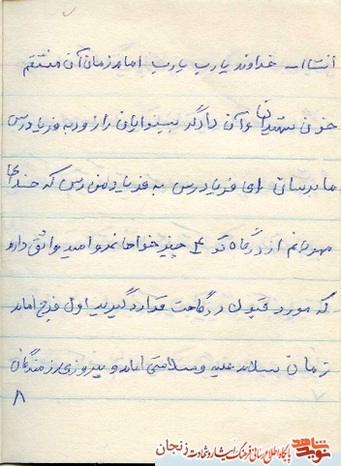 انشاالله خداوند یارب یارب امام زمان آن منتقم
خون شهیدان و آن دادگر بینوایان را زود به فریادرس
ما برسان ای فریادرس به فریاد من رس که خدای
مهربانم از درگاه تو 4 چیز خواهانم و امید واثق دارم
که مورد قبول درگاهت قرار گیرید اول فرج امام
زمان سلام علیه و سلامتی امام و پیروزی رزمندگان
۸
نوید شاهد
پایگاه اطلاع رسانی فرهنگ ایثار و شهادت زنجان